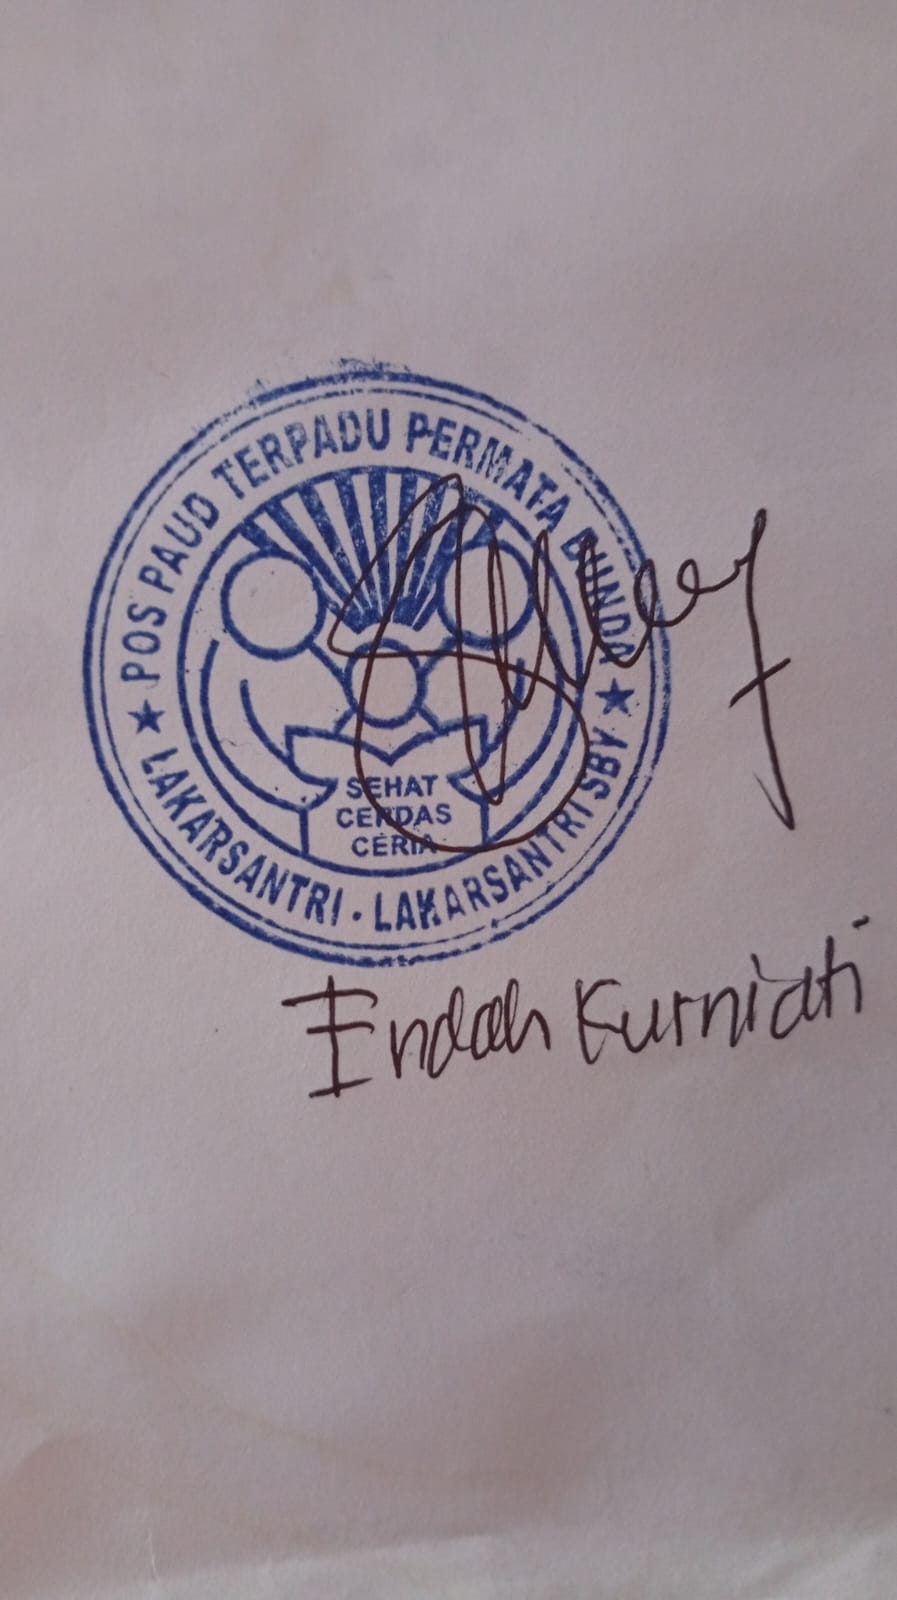 POS PAUD TERPADU PERMATA BUNDA
SEHAT
CERDAS
CERIA
LAKARSANTRI - LAKARSANTRI SBY
Endah Kurniati